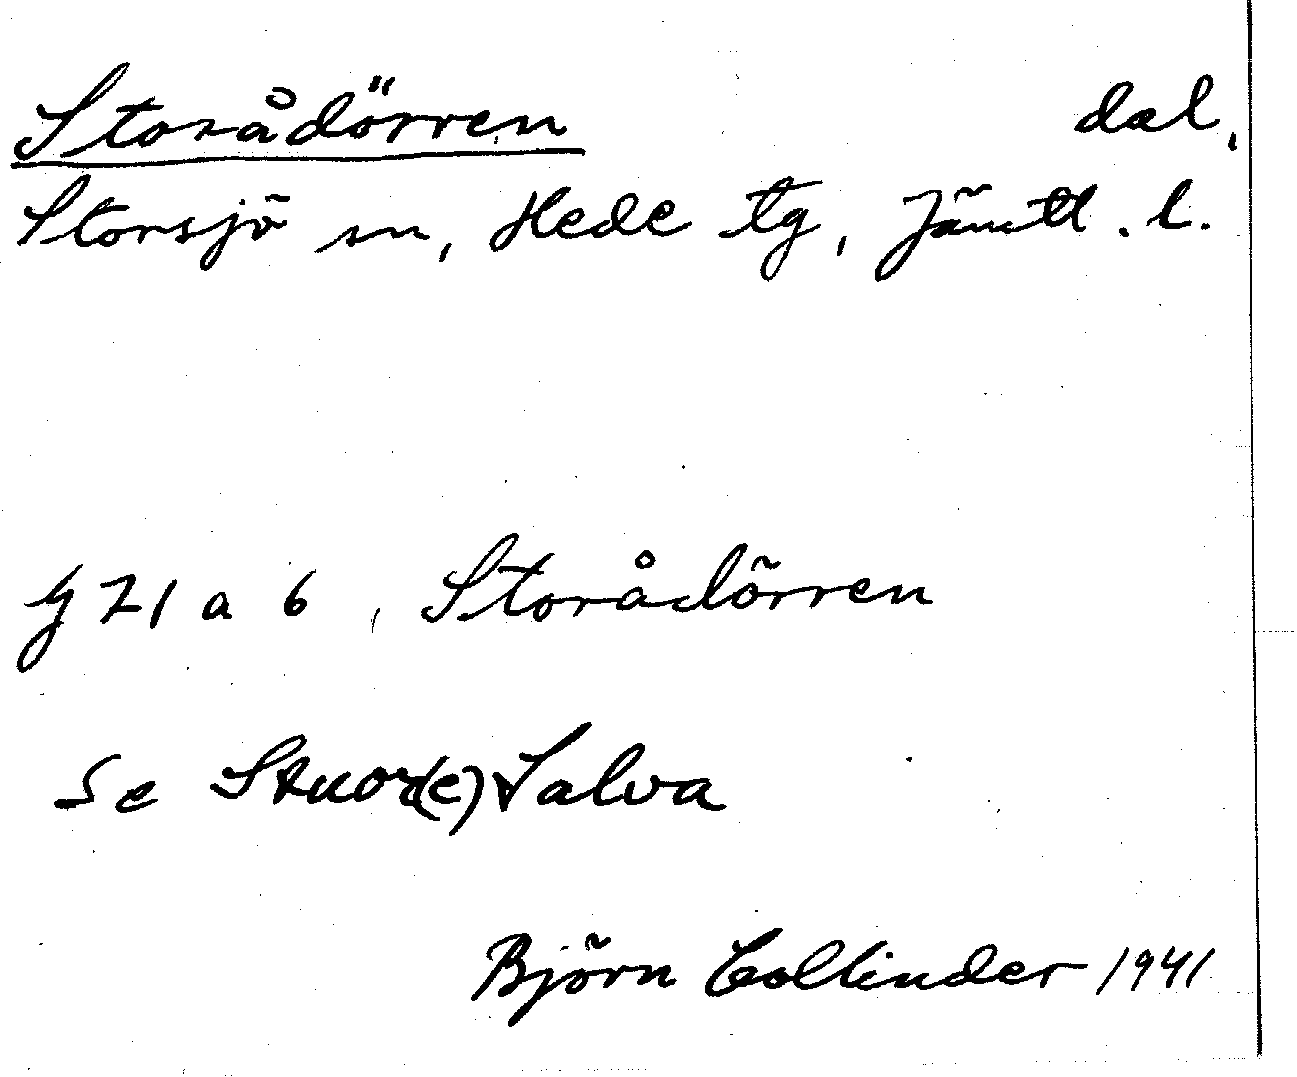 Storådörren dal,
Storsjö sn, Hede tg, Jämtl. l.
G 71 a 6, Storådörren
Se Stuor(e) Salva
Björn Collinder 1941